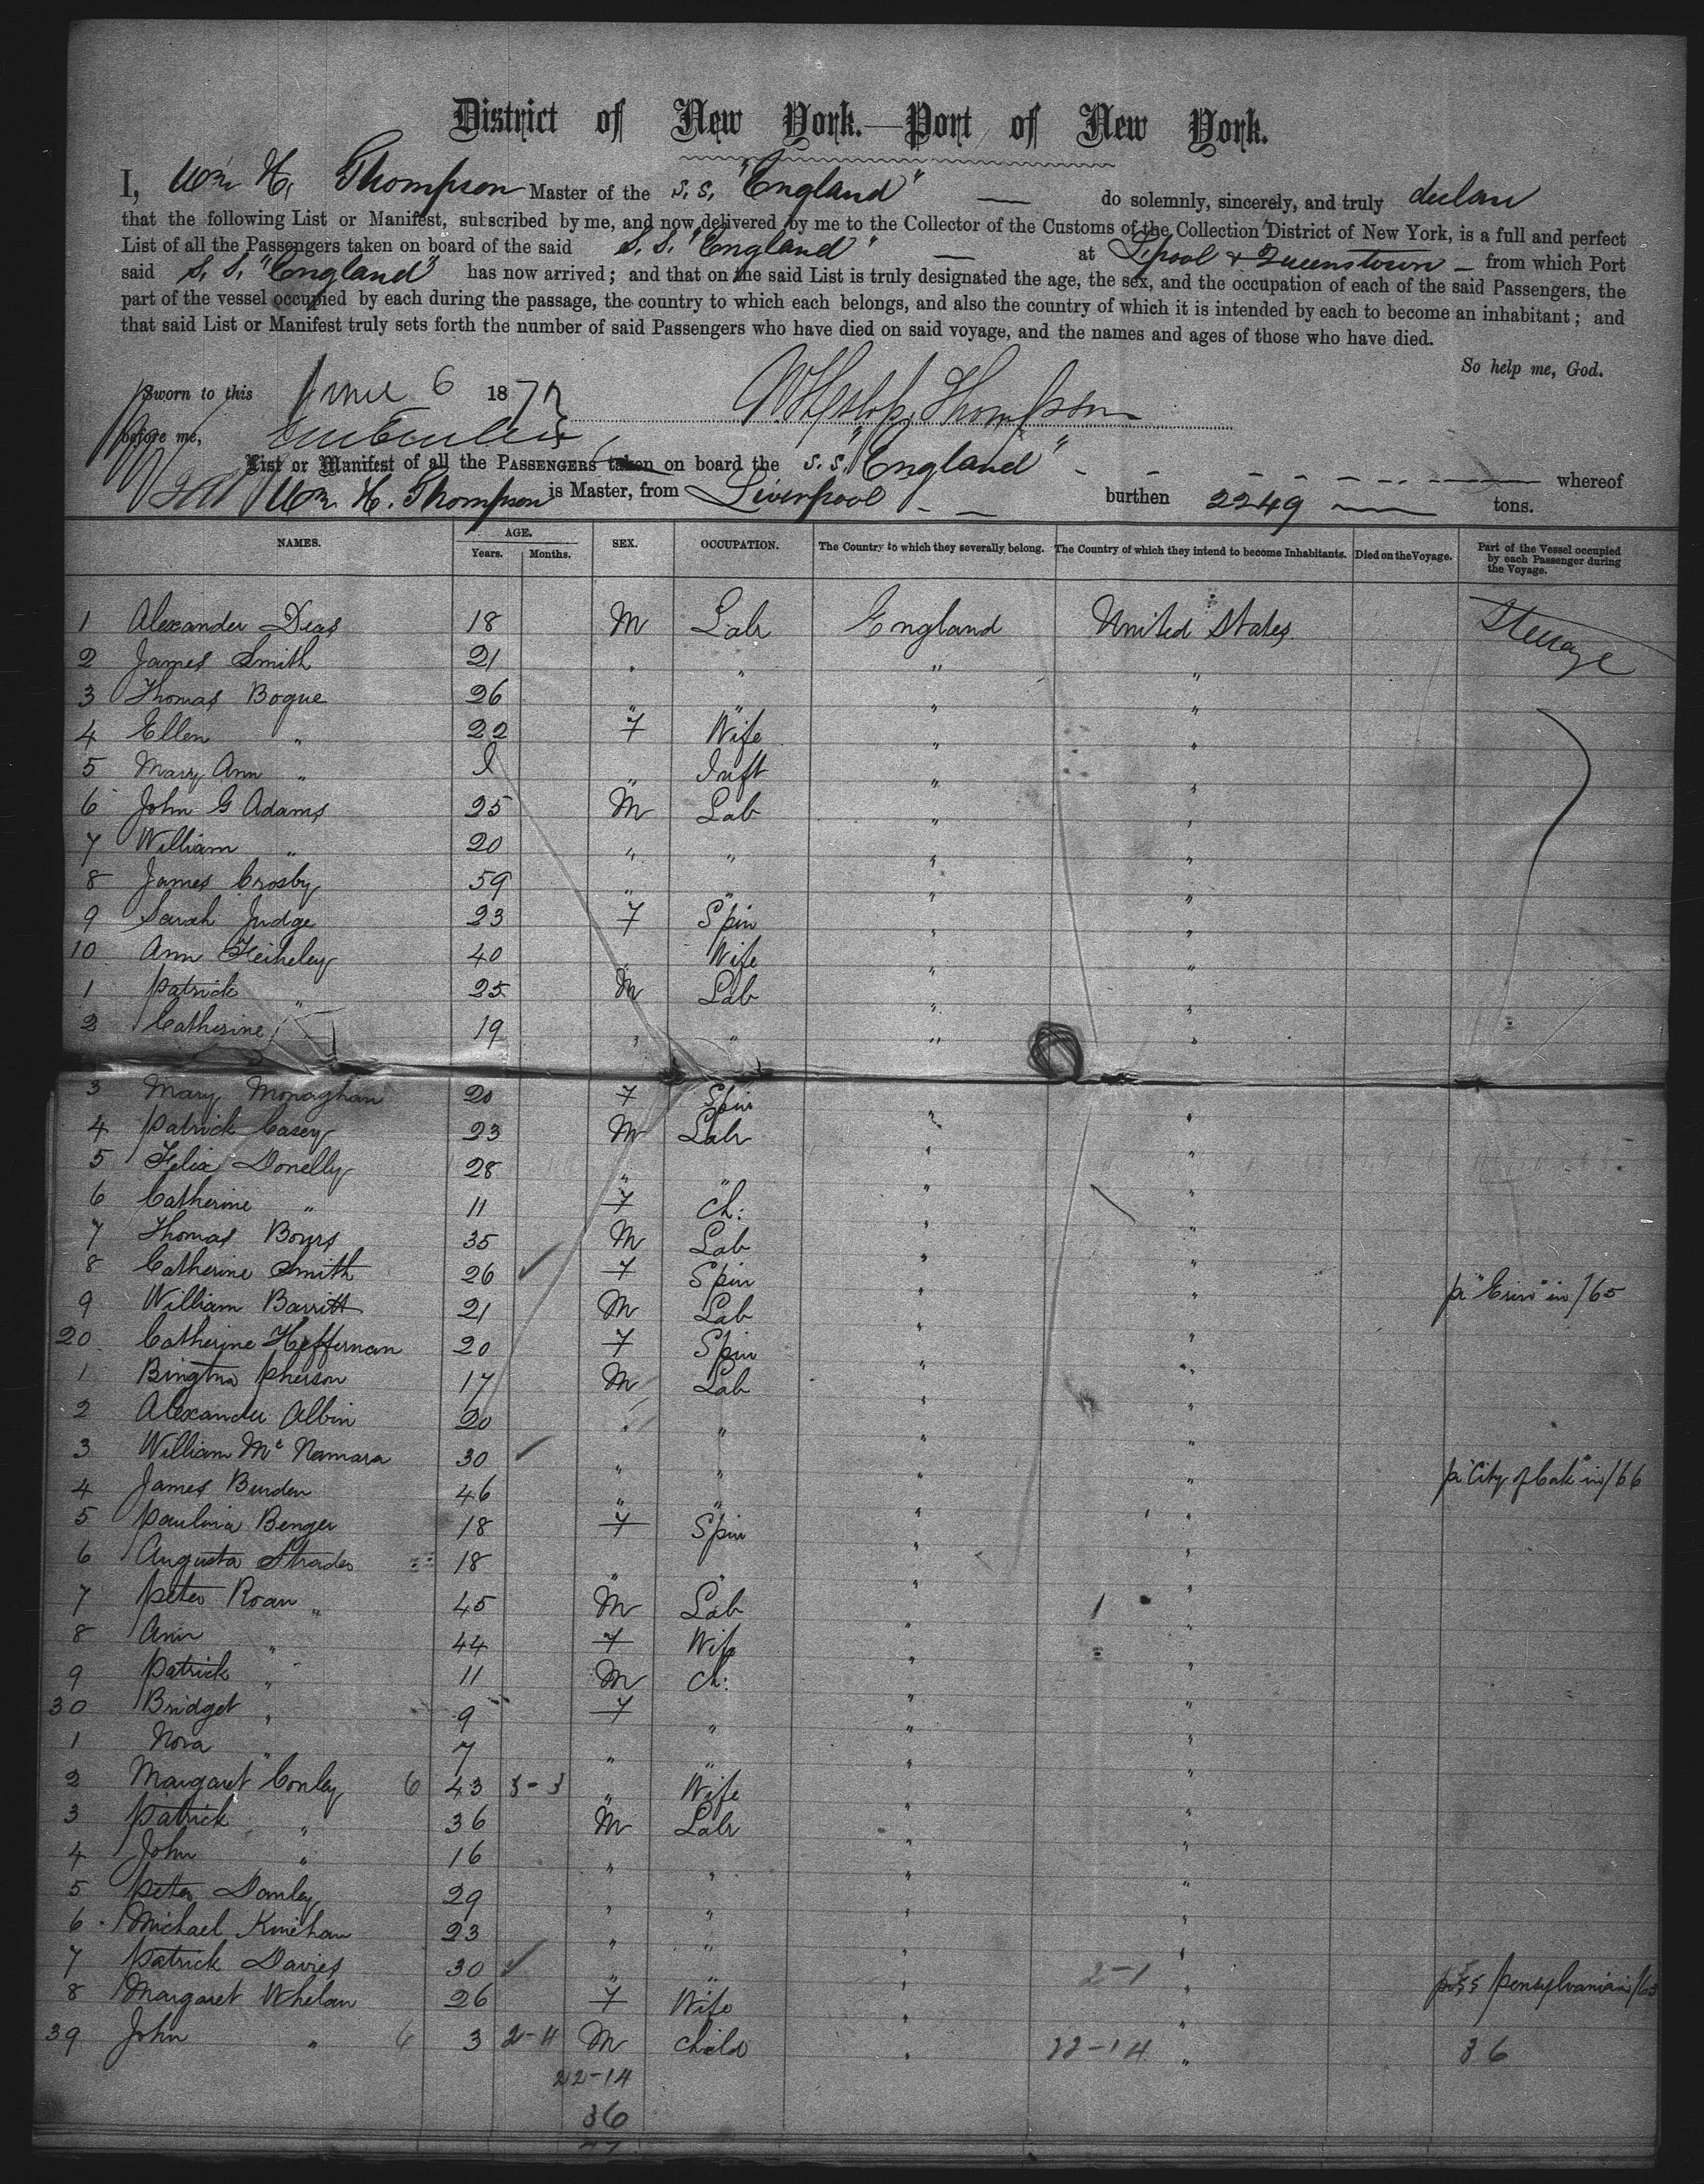 District of New York.—Port of New York.
I, Wm H. Thompson Master of the S. S. "England" — do solemnly, sincerely, and truly declare
that the following List or Manifest, subscribed by me, and now delivered by me to the Collector of the Customs of the Collection District of New York, is a full and perfect
List of all the Passengers taken on board of the said S. S. "England" — at L'pool & Queenstown — from which Port
said S. S. "England" has now arrived; and that on the said List is truly designated the age, the sex, and the occupation of each of the said Passengers, the
part of the vessel occupied by each during the passage, the country to which each belongs, and also the country of which it is intended by each to become an inhabitant; and
that said List or Manifest truly sets forth the number of said Passengers who have died on said voyage, and the names and ages of those who have died.
So help me, God.
Sworn to this June 6 1877 W Heslop Thompson
before me,
List or Manifest of all the PASSENGERS taken on board the S. S. "England" whereof
Wm. H. Thompson is Master, from Liverpool burthen 2249 tons.
NAMES. AGE. Years. Months. SEX. OCCUPATION. The Country to which they severally belong. The Country of which they intend to become Inhabitants. Died on the Voyage. Part of the Vessel occupied by each Passenger during the Voyage.
1 Alexander Deas 18 M Labr England United States Steerage
2 James Smith 21 " " " "
3 Thomas Bogue 26 " " " "
4 Ellen " 22 F Wife " "
5 Mary Ann " I " Inft " "
6 John G Adams 25 M Lab " "
7 William " 20 " " " "
8 James Crosby 59 " " " "
9 Sarah Judge 23 F Spin " "
10 Ann 40 " Wife " "
1 Patrick " 25 M Lab " "
2 Catherine " 19 " " " "
3 Mary Monaghan 20 F Spin " "
4 Patrick Casey 23 M Labr " "
5 Felix Donelly 28 " " " "
6 Catherine " 11 F Ch: " "
7 Thomas 35 M Lab " "
8 Catherine Smith 26 F Spin " " pr "Erin" in /65
9 William Barritt 21 M Lab " "
20 Catherine Heffernan 20 F Spin " "
1 Pherson 17 M Lab " "
2 Alexander Albin 20 " " " "
3 William Mc Namara 30 " " " " pr "City of Cork" in /66
4 James Burden 46 " " " "
5 Paulina Benger 18 F Spin " "
6 Augusta 18 " " " "
7 Peter Roan " 45 M Lab " "
8 Ann " 44 F Wife " "
9 Patrick " 11 M Ch: " "
30 Bridget " 9 F " " "
1 Nora " 7 " " " "
2 Margaret Conley 6 43 3-3 " Wife " "
3 Patrick " 36 M Labr " "
4 John " 16 " " " "
5 Peter Donley 29 " " " "
6 Michael Kinehan 23 " " " "
7 Patrick Davies 30 " " " 2-1 " pr SS Pensylvania in /63
8 Margaret Whelan 26 F Wife " "
39 John " 6 3 2-11 M Child " 22-14 " 36
22-14
36